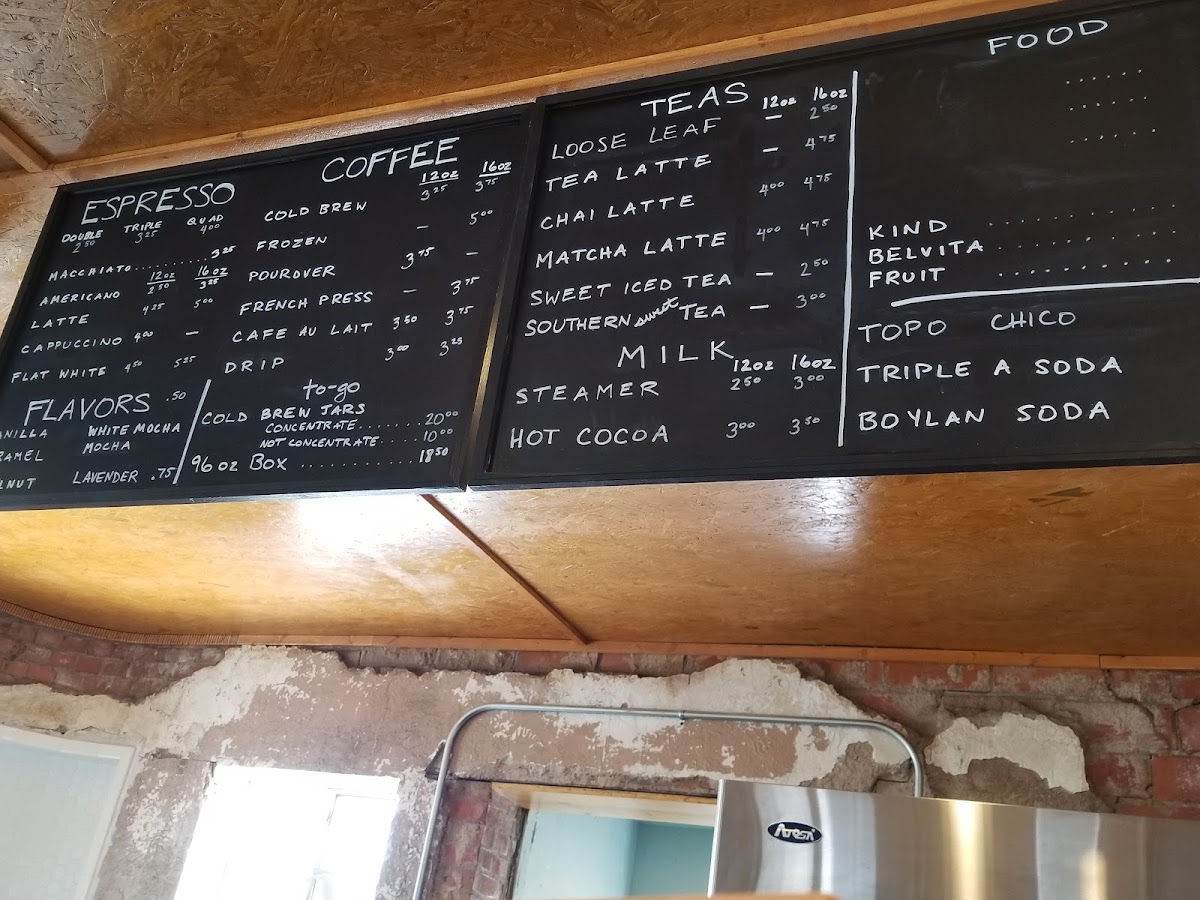 ESPRESSO
DOUBLE TRIPLE QUAD
2.50 3.25 4.00
MACCHIATO.......... 3.25
12oz 16oz
AMERICANO 2.50 3.25
LATTE 4.25 5.00
CAPPUCCINO 4.00 —
FLAT WHITE 4.50 5.25
FLAVORS .50
WHITE MOCHA
MOCHA
LAVENDER .75
COFFEE
12oz 16oz
COLD BREW 3.25 3.75
FROZEN — 5.00
POUROVER 3.75 —
FRENCH PRESS — 3.75
CAFE AU LAIT 3.50 3.75
DRIP 3.00 3.25
to-go
COLD BREW JARS
CONCENTRATE........20.00
NOT CONCENTRATE......10.00
96oz BOX ..............18.50
TEAS 12oz 16oz
LOOSE LEAF — 2.50
TEA LATTE — 4.75
CHAI LATTE 4.00 4.75
MATCHA LATTE 4.00 4.75
SWEET ICED TEA — 2.50
SOUTHERN sweet TEA — 3.00
MILK 12oz 16oz
STEAMER 2.50 3.00
HOT COCOA 3.00 3.50
FOOD
KIND ..............
BELVITA..............
FRUIT ..............
TOPO CHICO
TRIPLE A SODA
BOYLAN SODA
Atosa